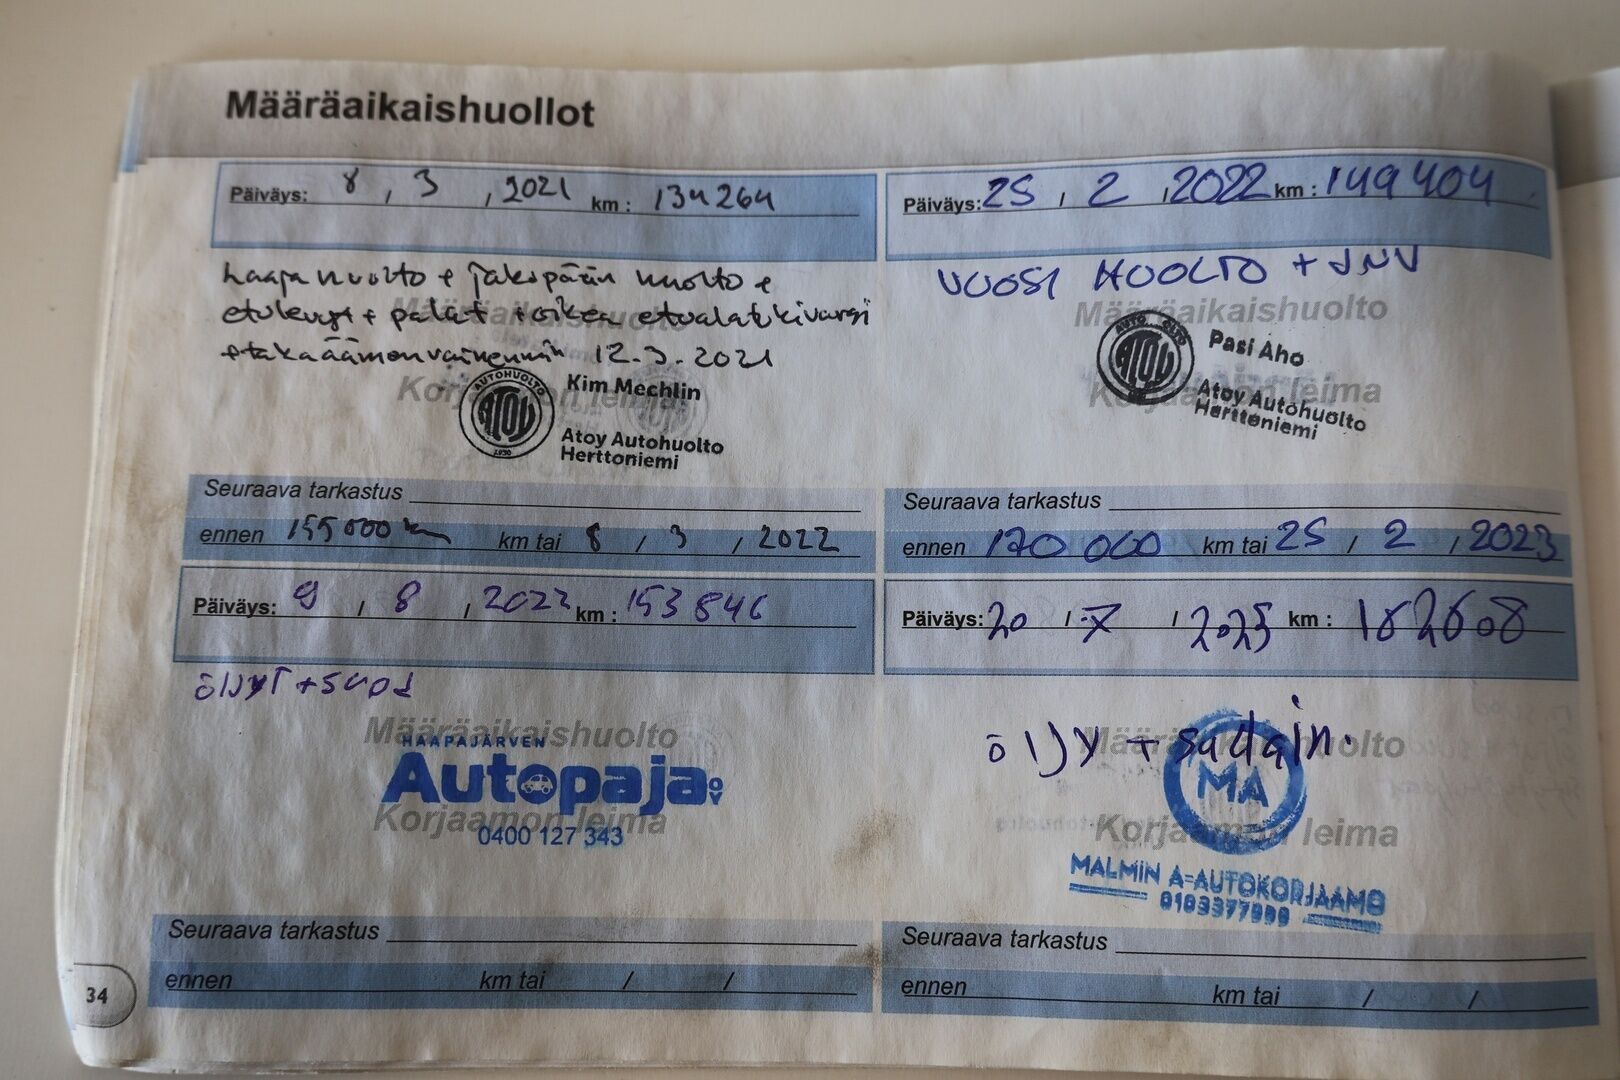 Määräaikaishuollot
Päiväys: 8 , 3 , 2021 km : 134264
Laaja huolto + jakopään huolto +
etulevyt + palat + oikea etualatukivarsi
+ takaäänenvaimennin 12.3.2021
Määräaikaishuolto
Korjaamon leima
AUTOHUOLTO
ATOY
1930
Kim Mechlin
Atoy Autohuolto
Herttoniemi
Seuraava tarkastus
ennen 155000 km km tai 8 / 3 / 2022
Päiväys: 25 / 2 / 2022 km : 149404
VUOSI HUOLTO + JNV
Määräaikaishuolto
Korjaamon leima
ATOY
Pasi Aho
Atoy Autohuolto
Herttoniemi
Seuraava tarkastus
ennen 170 000 km tai 25 / 2 / 2023
Päiväys: 9 / 8 / 2022 km : 153846
öljyt + suod
Määräaikaishuolto
HAAPAJÄRVEN
Autopaja OY
Korjaamon leima
0400 127 343
Seuraava tarkastus
ennen km tai / /
Päiväys: 20 / 7 / 2025 km : 182608
öljy + suodatin.
Määräaikaishuolto
MA
Korjaamon leima
MALMIN A-AUTOKORJAAMO
Seuraava tarkastus
ennen km tai / /
34